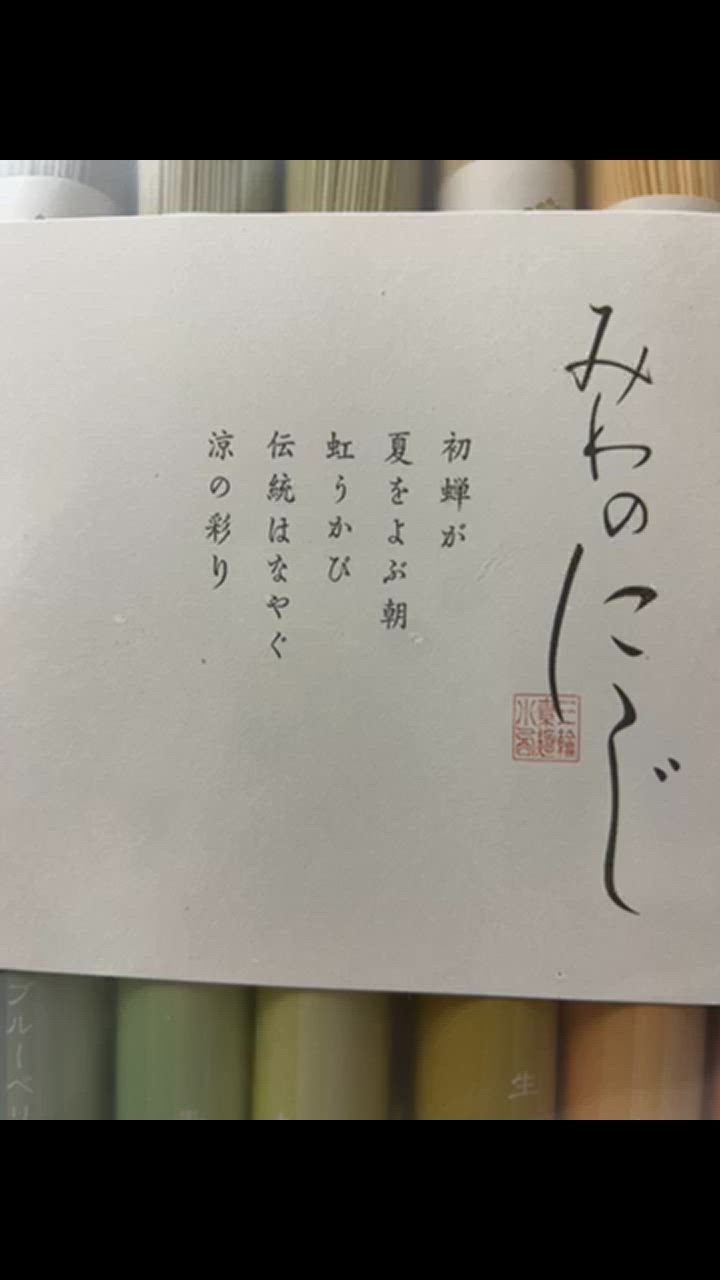 みわの
にじ
初蝉が
夏をよぶ朝
虹うかび
伝統はなやぐ
涼の彩り
ブルーベリ
生